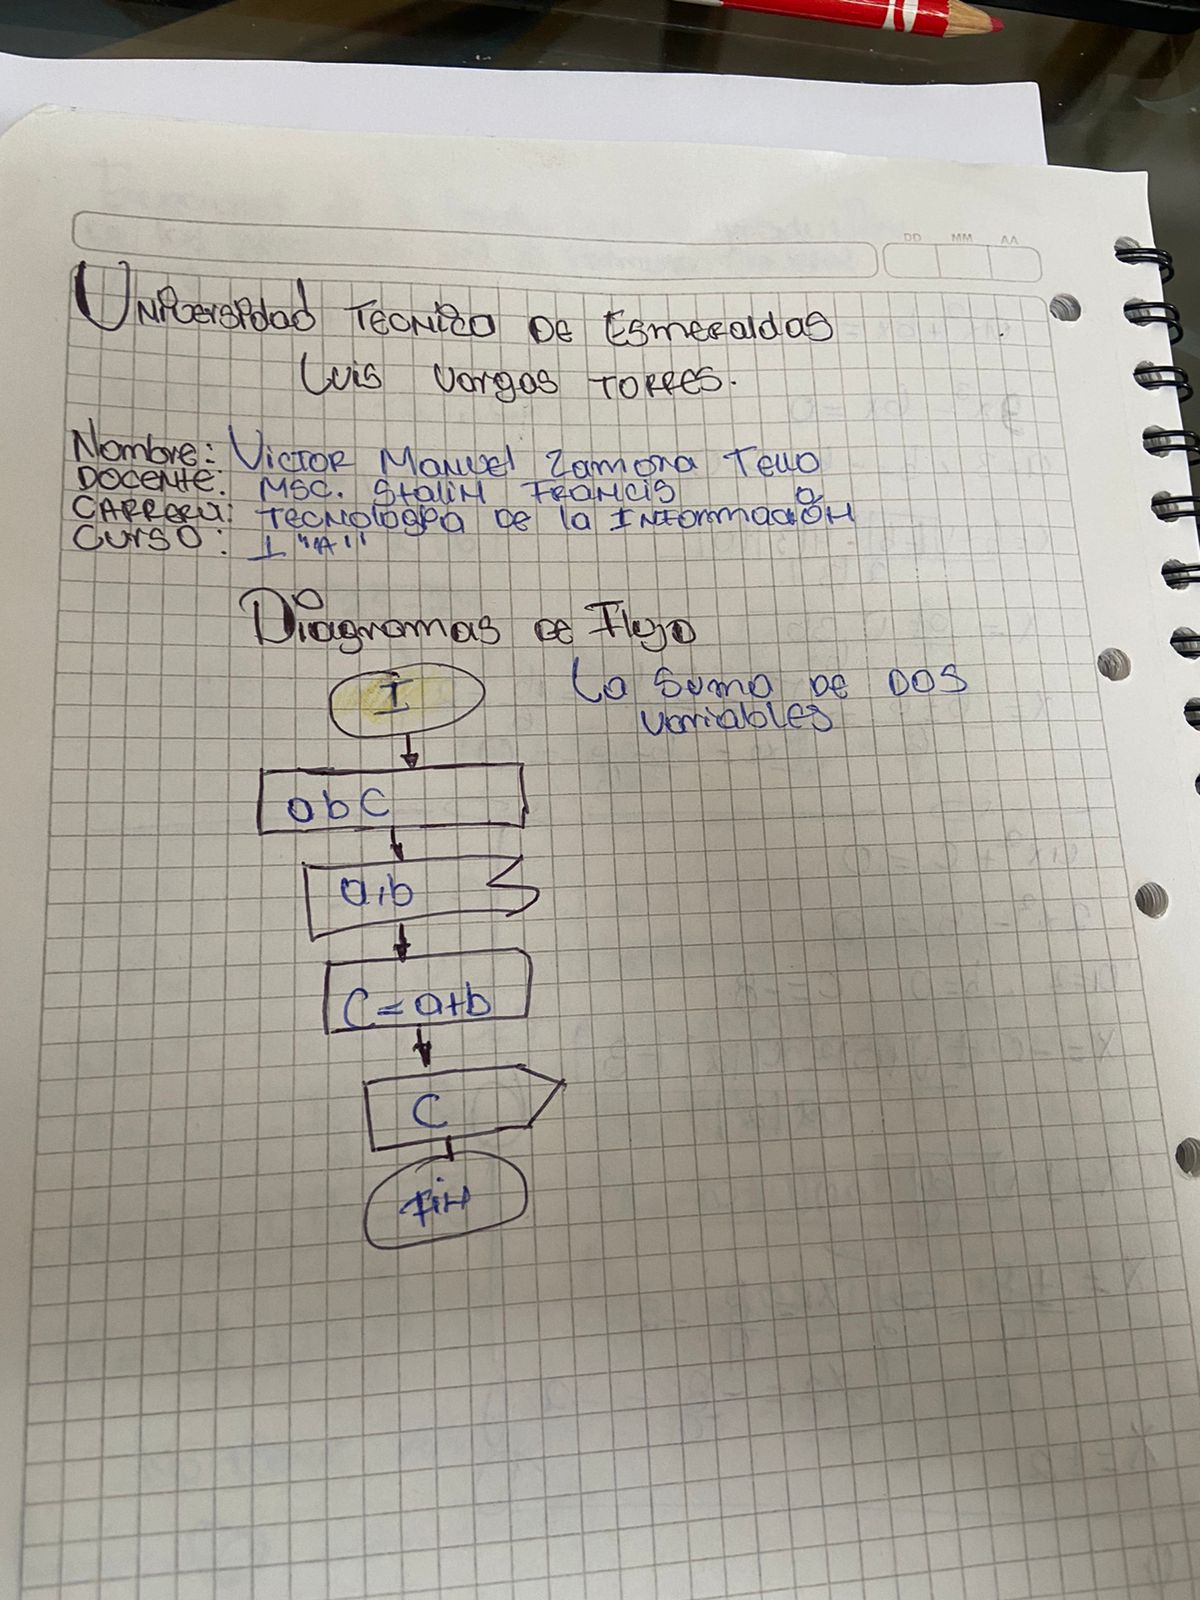 DD MM AA
Universidad Tecnica de Esmeraldas
Luis Vargas Torres.
Nombre: Victor Manuel Zamora Tello
Docente: Msc. Stalin Francis
Carrera: Tecnologia de la Información
Curso: I "A"
Diagramas de Flujo
I
La Suma de Dos
variables
a b C
a,b
C=a+b
C
Fin